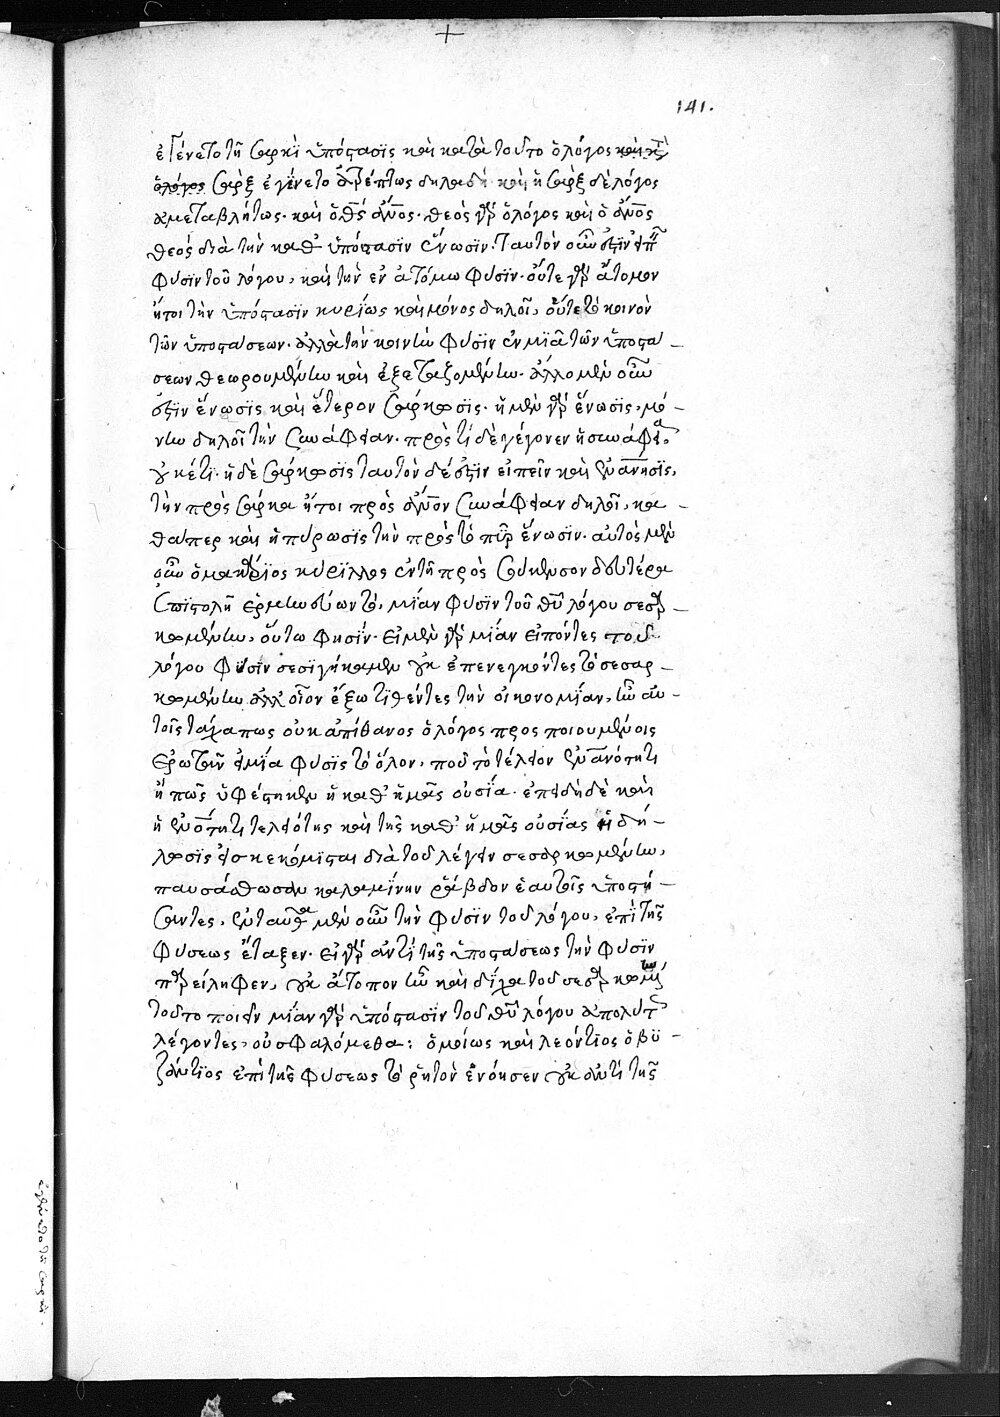 141.
ἐγένετο τῆ σαρκὶ ὑπόστασις καὶ κατὰ τοῦτο ὁ λόγος καὶ
ὁ λόγος σὰρξ ἐγένετο ἀτρέπτως δηλαδὴ καὶ ἡ σὰρξ δὲ λόγος
ἀμεταβλήτως· καὶ ὁ θς ἄνος· θεὸς γὰρ ὁ λόγος καὶ ὁ ἄνος
θεὸς διὰ τὴν καθ' ὑπόστασιν ἕνωσιν· Ταυτὸν οὖν ἐστιν εἰπεῖν
φύσιν τοῦ λόγου, καὶ τὴν ἐν ἀτόμω φύσιν· οὔτε γὰρ ἄτομον
ἤτοι τὴν ὑπόστασιν κυρίως καὶ μόνος δηλοῖ, οὔτε τὸ κοινὸν
τῶν ὑποστάσεων· ἀλλὰ τὴν κοινὴν φύσιν ἐν μιᾶ τῶν ὑποστά-
σεων θεωρουμένην καὶ ἐξεταζομένην· ἄλλο μὲν οὖν
ἐστιν ἕνωσις καὶ ἕτερον σάρκωσις· ἡ μὲν γὰρ ἕνωσις, μό-
νην δηλοῖ τὴν συνάφειαν· πρὸς τί δὲ γέγονεν ἡ συνάφεια
οὐκέτι· ἡ δὲ σάρκωσις ταυτὸν δέ ἐστιν εἰπεῖν καὶ ἐνανησις,
τὴν πρὸς σάρκα ἤτοι πρὸς ἄνον συνάφειαν δηλοῖ, κα-
θάπερ καὶ ἡ πύρωσις τὴν πρὸς τὸ πῦρ ἕνωσιν· αὐτὸς μὲν
οὖν ὁ μακάριος κύριλλος ἐν τῆ πρὸς σούκενσον δευτέρα
ἐπιστολῆ ἑρμηνεύων τὸ, μίαν φύσιν τοῦ θῦ λόγου σεσαρ-
κωμένην, οὕτω φησίν· εἰ μὲν γὰρ μίαν εἰπόντες τοῦ
λόγου φύσιν σεσιγήκαμεν οὐκ ἐπενεγκόντες τὸ σεσαρ-
κωμένην ἀλλ' οἷον ἔξω τιθέντες τὴν οἰκονομίαν, ἦν αὐ-
τοῖς τάχα πως οὐκ ἀπίθανος ὁ λόγος προσποιουμένοις
ἐρωτᾶν εἰ μία φύσις τὸ ὅλον, ποῦ τὸ τέλειον ἐν ἀνότητι
ἢ πῶς ὑφέστηκεν ἡ καθ' ἡμᾶς οὐσία· ἐπειδὴ δὲ καὶ
ἡ ἐν ἀνότητι τελειότης καὶ τῆς καθ' ἡμᾶς οὐσίας ἡ δή-
λωσις εἰσκεκόμισται διὰ τοῦ λέγειν σεσαρκωμένην,
παυσάσθωσαν καλαμίνην ῥάβδον ἑαυτοῖς ὑποστή-
σαντες, ἐνταῦθα μὲν οὖν τὴν φύσιν τοῦ λόγου, ἐπὶ τῆς
φύσεως ἔταξεν· εἰ γὰρ ἀντὶ τῆς ὑποστάσεως τὴν φύσιν
παρείληφεν, οὐκ ἄτοπον ἦν καὶ δίχα τοῦ σεσαρκωμένην
τοῦτο ποιεῖν μίαν γὰρ ὑπόστασιν τοῦ θῦ λόγου ἀπολύτως
λέγοντες, οὐ σφαλόμεθα: ὁμοίως καὶ λεόντιος ὁ βυ-
ζάντιος ἐπὶ τῆς φύσεως τὸ ῥητὸν ἐνόησεν οὐκ ἀντὶ τῆς